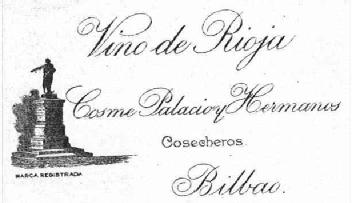 Vino de Rioja
Cosme Palacio y Hermanos
Cosecheros
Bilbao.
MARCA REGISTRADA